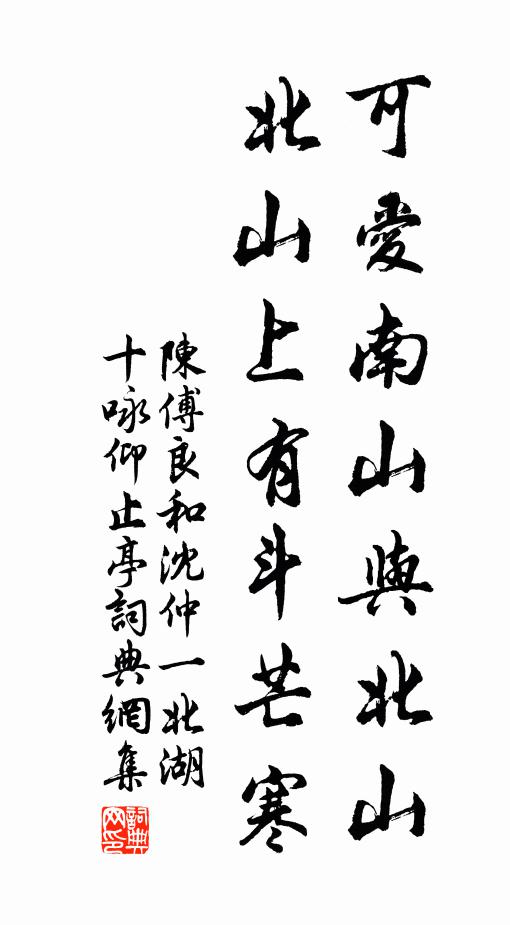 可愛南山與北山
北山上有斗芒寒
陳傅良和沈仲一北湖
十咏仰止亭詞典網集
詞典
网印